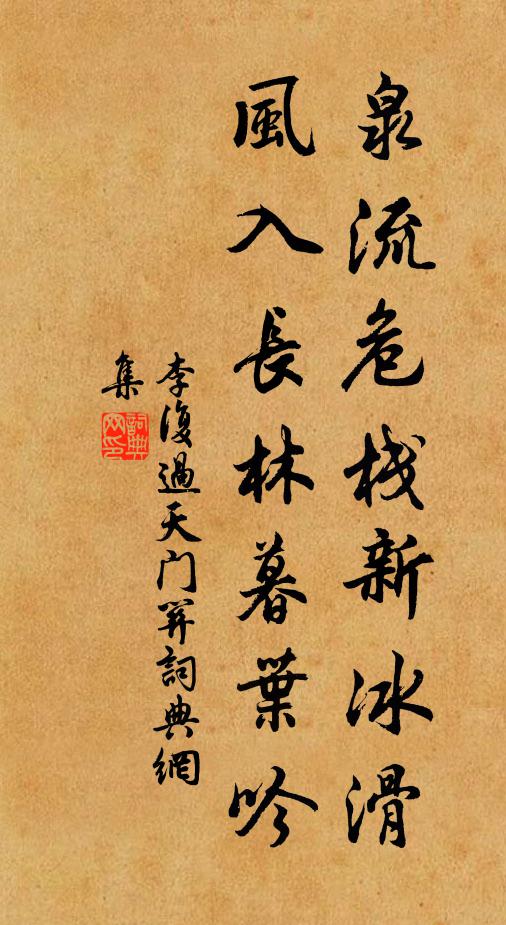 泉流危栈新冰滑
風入長林暮葉吟
李復過天门関詞典網
集
詞典網印